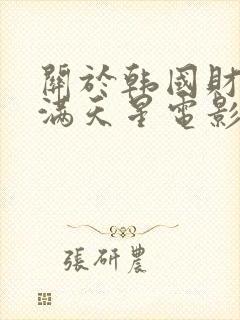 關於韩國財
滿天星電影
張研農